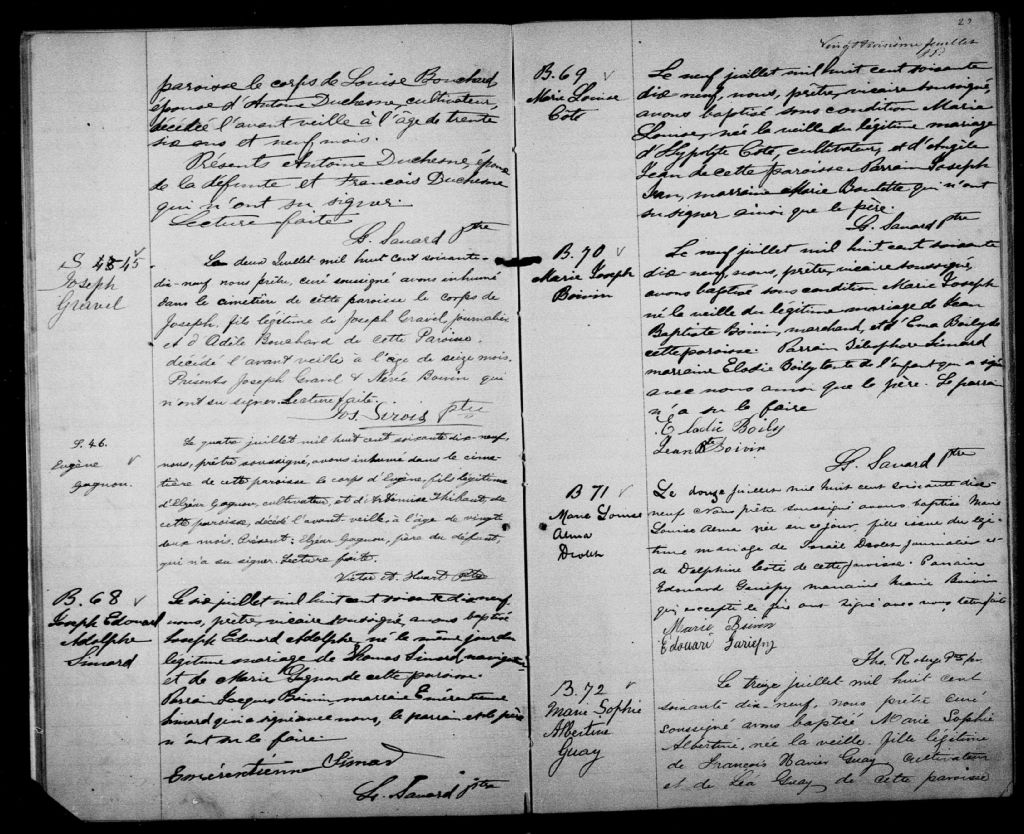 paroisse le corps de Louise Bouchard
épouse d'Antoine Duchesne, cultivateur,
décédée l'avant veille à l'âge de trente
six ans et neuf mois.
Présents Antoine Duchesne, époux
de la défunte et François Duchesne
qui n'ont su signer.
Lecture faite
H. Savard ptre
S 45
Joseph
Gravel
Le deux Juillet mil huit cent soixante-
dix-neuf nous prêtre, curé soussigné avons inhumé
dans le cimetière de cette paroisse le corps de
Joseph, fils légitime de Joseph Gravel, journalier
et d'Adèle Bouchard de cette Paroisse.
décédé l'avant veille à l'âge de seize mois.
Présents Joseph Gravel & Nérée Boivin qui
n'ont su signer. Lecture faite.
Jos Sirois ptre
S. 46.
Eugène
Gagnon.
Le quatre juillet mil huit cent soixante dix-neuf,
nous, prêtre soussigné, avons inhumé dans le cime-
tière de cette paroisse le corps d'Eugène, fils légitime
d'Elzéar Gagnon, cultivateur, et de Denise Thibault, de
cette paroisse, décédé l'avant veille, à l'âge de vingt
deux mois. Présent: Elzéar Gagnon, père du défunt,
qui n'a su signer. Lecture faite.
Victor A. Huart Ptre
B. 68
Joseph Edouard
Adolphe
Simard
Le six juillet mil huit cent soixante dix neuf
nous, prêtre, vicaire soussigné, avons baptisé
Joseph Edouard Adolphe, né le même jour du
légitime mariage de Thomas Simard, navigateur
et de Marie Gagnon de cette paroisse.
Parrain Jacques Boivin, marraine Emérentienne
Simard qui a signé avec nous, le parrain et le père
n'ont su le faire.
Emérentienne Simard
H. Savard ptre
23
Vingt troisième feuillet
B. 69
Marie Louise
Cote
Le neuf juillet mil huit cent soixante
dix neuf, nous, prêtre, vicaire soussigné,
avons baptisé sous condition Marie
Louise, née la veille du légitime mariage
d'Hypolyte Cote, cultivateur, et d'Angèle
Jean de cette paroisse. Parrain Joseph
Jean, marraine Marie Boulette qui n'ont
su signer ainsi que le père.
H. Savard ptre
B. 70
Marie Joseph
Boivin
Le neuf juillet mil huit cent soixante
dix neuf, nous, prêtre, vicaire soussigné,
avons baptisé sous condition Marie Joseph
né la veille du légitime mariage de Jean
Baptiste Boivin, marchand, et d'Ema Boily de
cette paroisse. Parrain Télesphore Simard
marraine Elodie Boily tante de l'enfant qui a signé
avec nous ainsi que le père. Le parrain
n'a su le faire
Elodie Boily
Jean Bte Boivin
H. Savard ptre
B 71
Marie Louise
Alma
Drolet
Le douze juillet mil huit cent soixante dix
neuf Nous prêtre soussigné avons baptisé Marie
Louise Alma née en ce jour, fille issue du légi-
time mariage de Israël Drolet journalier et
de Delphine Coté de cette paroisse. Parrain
Edouard Gariepy marraine Marie Boivin
qui excepté le père ont signé avec nous lecture faite
Marie Boivin
Edouard Gariepy
Ths. Roberge Ptre
B. 72
Marie-Sophie
Albertine
Guay
Le treize juillet mil huit cent
soixante dix-neuf, nous prêtre curé
soussigné avons baptisé Marie Sophie
Albertine, née la veille. fille légitime
de François Xavier Guay, cultivateur
et de Léa Guay de cette paroisse